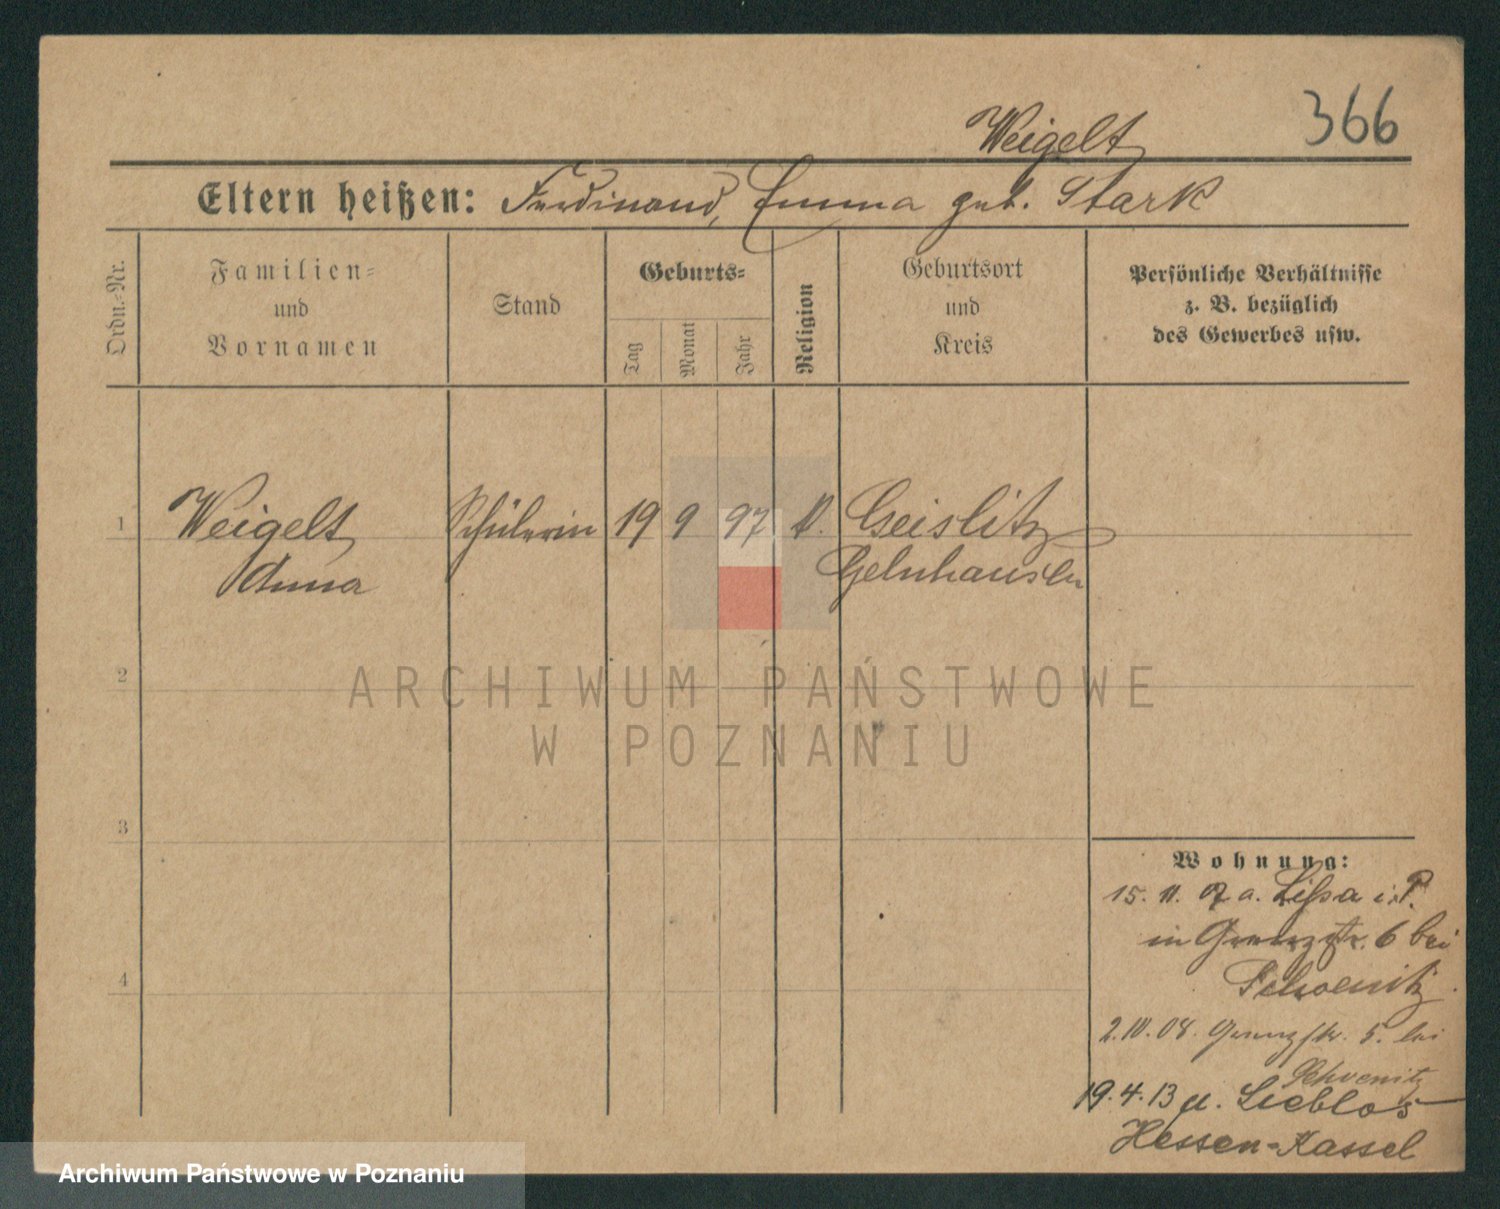 366
Weigelt
Eltern heißen: Ferdinand, Emma geb. Stark
Ordn.-Nr.
Familien-
und
Vornamen
Stand
Geburts-
Tag
Monat
Jahr
Religion
Geburtsort
und
Kreis
Persönliche Verhältnisse
z. B. bezüglich
des Gewerbes usw.
1 Weigelt Schülerin 19 9 97 Geislitz
Anna Gelnhausen
2
ARCHIWUM PAŃSTWOWE
W POZNANIU
3
4
Wohnung:
15. 11. 07 a. Lissa i. P.
in Grenzstr. 6 bei
Schoenitz
2. 10. 08. Grenzstr. 5. bei
Schoenitz
19. 4. 13 n. Lieblos
Hessen-Kassel
Archiwum Państwowe w Poznaniu